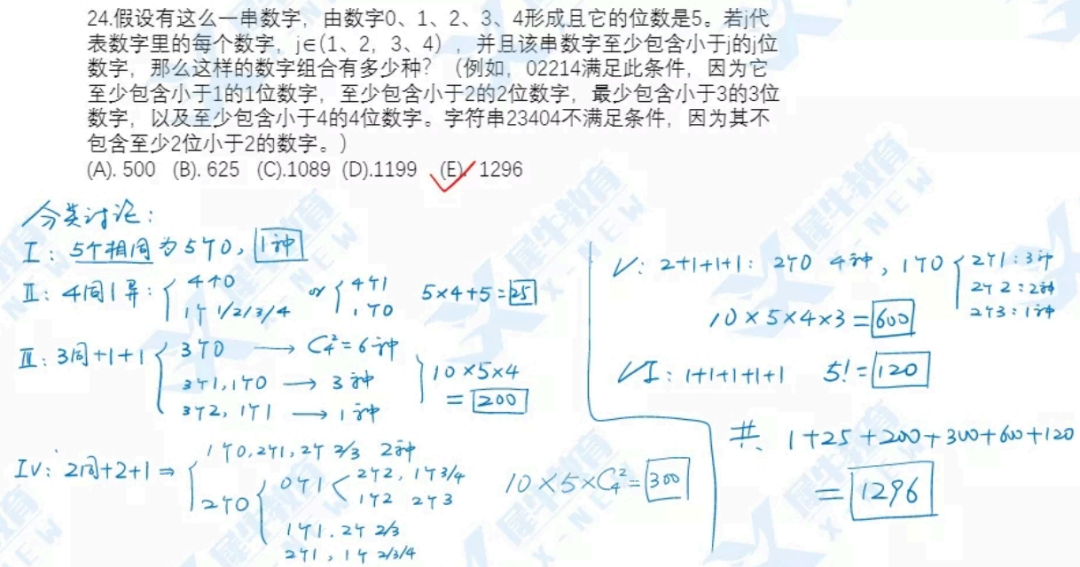 24.假设有这么一串数字，由数字0、1、2、3、4形成且它的位数是5。若j代
表数字里的每个数字，j∈(1、2，3、4)，并且该串数字至少包含小于j的j位
数字，那么这样的数字组合有多少种？（例如，02214满足此条件，因为它
至少包含小于1的1位数字，至少包含小于2的2位数字，最少包含小于3的3位
数字，以及至少包含小于4的4位数字。字符串23404不满足条件，因为其不
包含至少2位小于2的数字。）
(A). 500 (B). 625 (C).1089 (D).1199 (E). 1296
分类讨论：
I：5个相同为5个0，1种
II：4同1异：4个0
1个1/2/3/4
or 4个1
1个0
5×4+5=25
III：3同+1+1
3个0 → C₄²=6种
3个1,1个0 → 3种
3个2,1个1 → 1种
10×5×4
=200
IV：2同+2+1 ⇒
1个0,2个1,2个2/3 2种
2个0
0个1
2个2,1个3/4
1个2 2个3
1个1.2个2/3
2个1,1个2/3/4
10×5×C₄²=300
V：2+1+1+1：2个0 4种，1个0
2个1：3种
2个2：2种
2个3：1种
10×5×4×3=600
VI：1+1+1+1+1 5!=120
共 1+25+200+300+600+120
=1296
犀牛教育
X-NEW